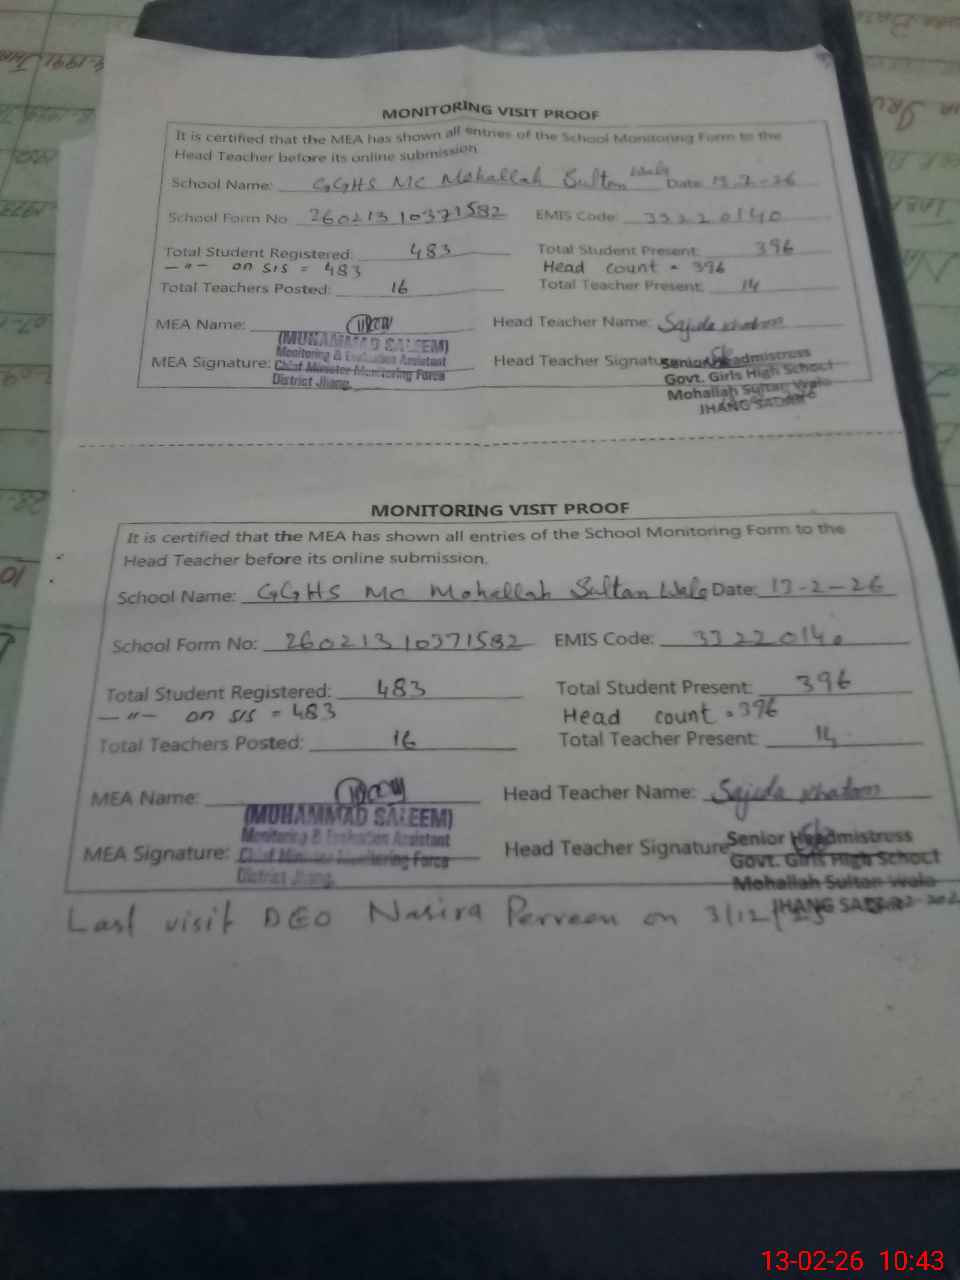 MONITORING VISIT PROOF
It is certified that the MEA has shown all entries of the School Monitoring Form to the
Head Teacher before its online submission.
School Name: GGHS MC Mohallah Sultan Wala Date: 13-2-26
School Form No: 26021310371582 EMIS Code: 33220140
Total Student Registered: 483 Total Student Present: 396
—"— on SIS = 483 Head count = 396
Total Teachers Posted: 16 Total Teacher Present: 14
MEA Name: Head Teacher Name: Sajida Khatoon
(MUHAMMAD SALEEM)
Monitoring & Evaluation Assistant
MEA Signature: Chief Minister Monitoring Force
District Jhang
Head Teacher Signature
Senior Headmistress
Govt. Girls High School
Mohallah Sultan Wala
JHANG SADAR
MONITORING VISIT PROOF
It is certified that the MEA has shown all entries of the School Monitoring Form to the
Head Teacher before its online submission.
School Name: GGHS MC Mohallah Sultan Wala Date: 13-2-26
School Form No: 26021310371582 EMIS Code: 33220140
Total Student Registered: 483 Total Student Present: 396
—"— on SIS = 483 Head count = 396
Total Teachers Posted: 16 Total Teacher Present: 14
MEA Name: Head Teacher Name: Sajida Khatoon
(MUHAMMAD SALEEM)
Monitoring & Evaluation Assistant
MEA Signature: Chief Minister Monitoring Force
District Jhang
Head Teacher Signature
Senior Headmistress
Govt. Girls High School
Mohallah Sultan Wala
JHANG SADAR
Last visit DEO Nasira Perveen on 3/12/25
13-02-26 10:43